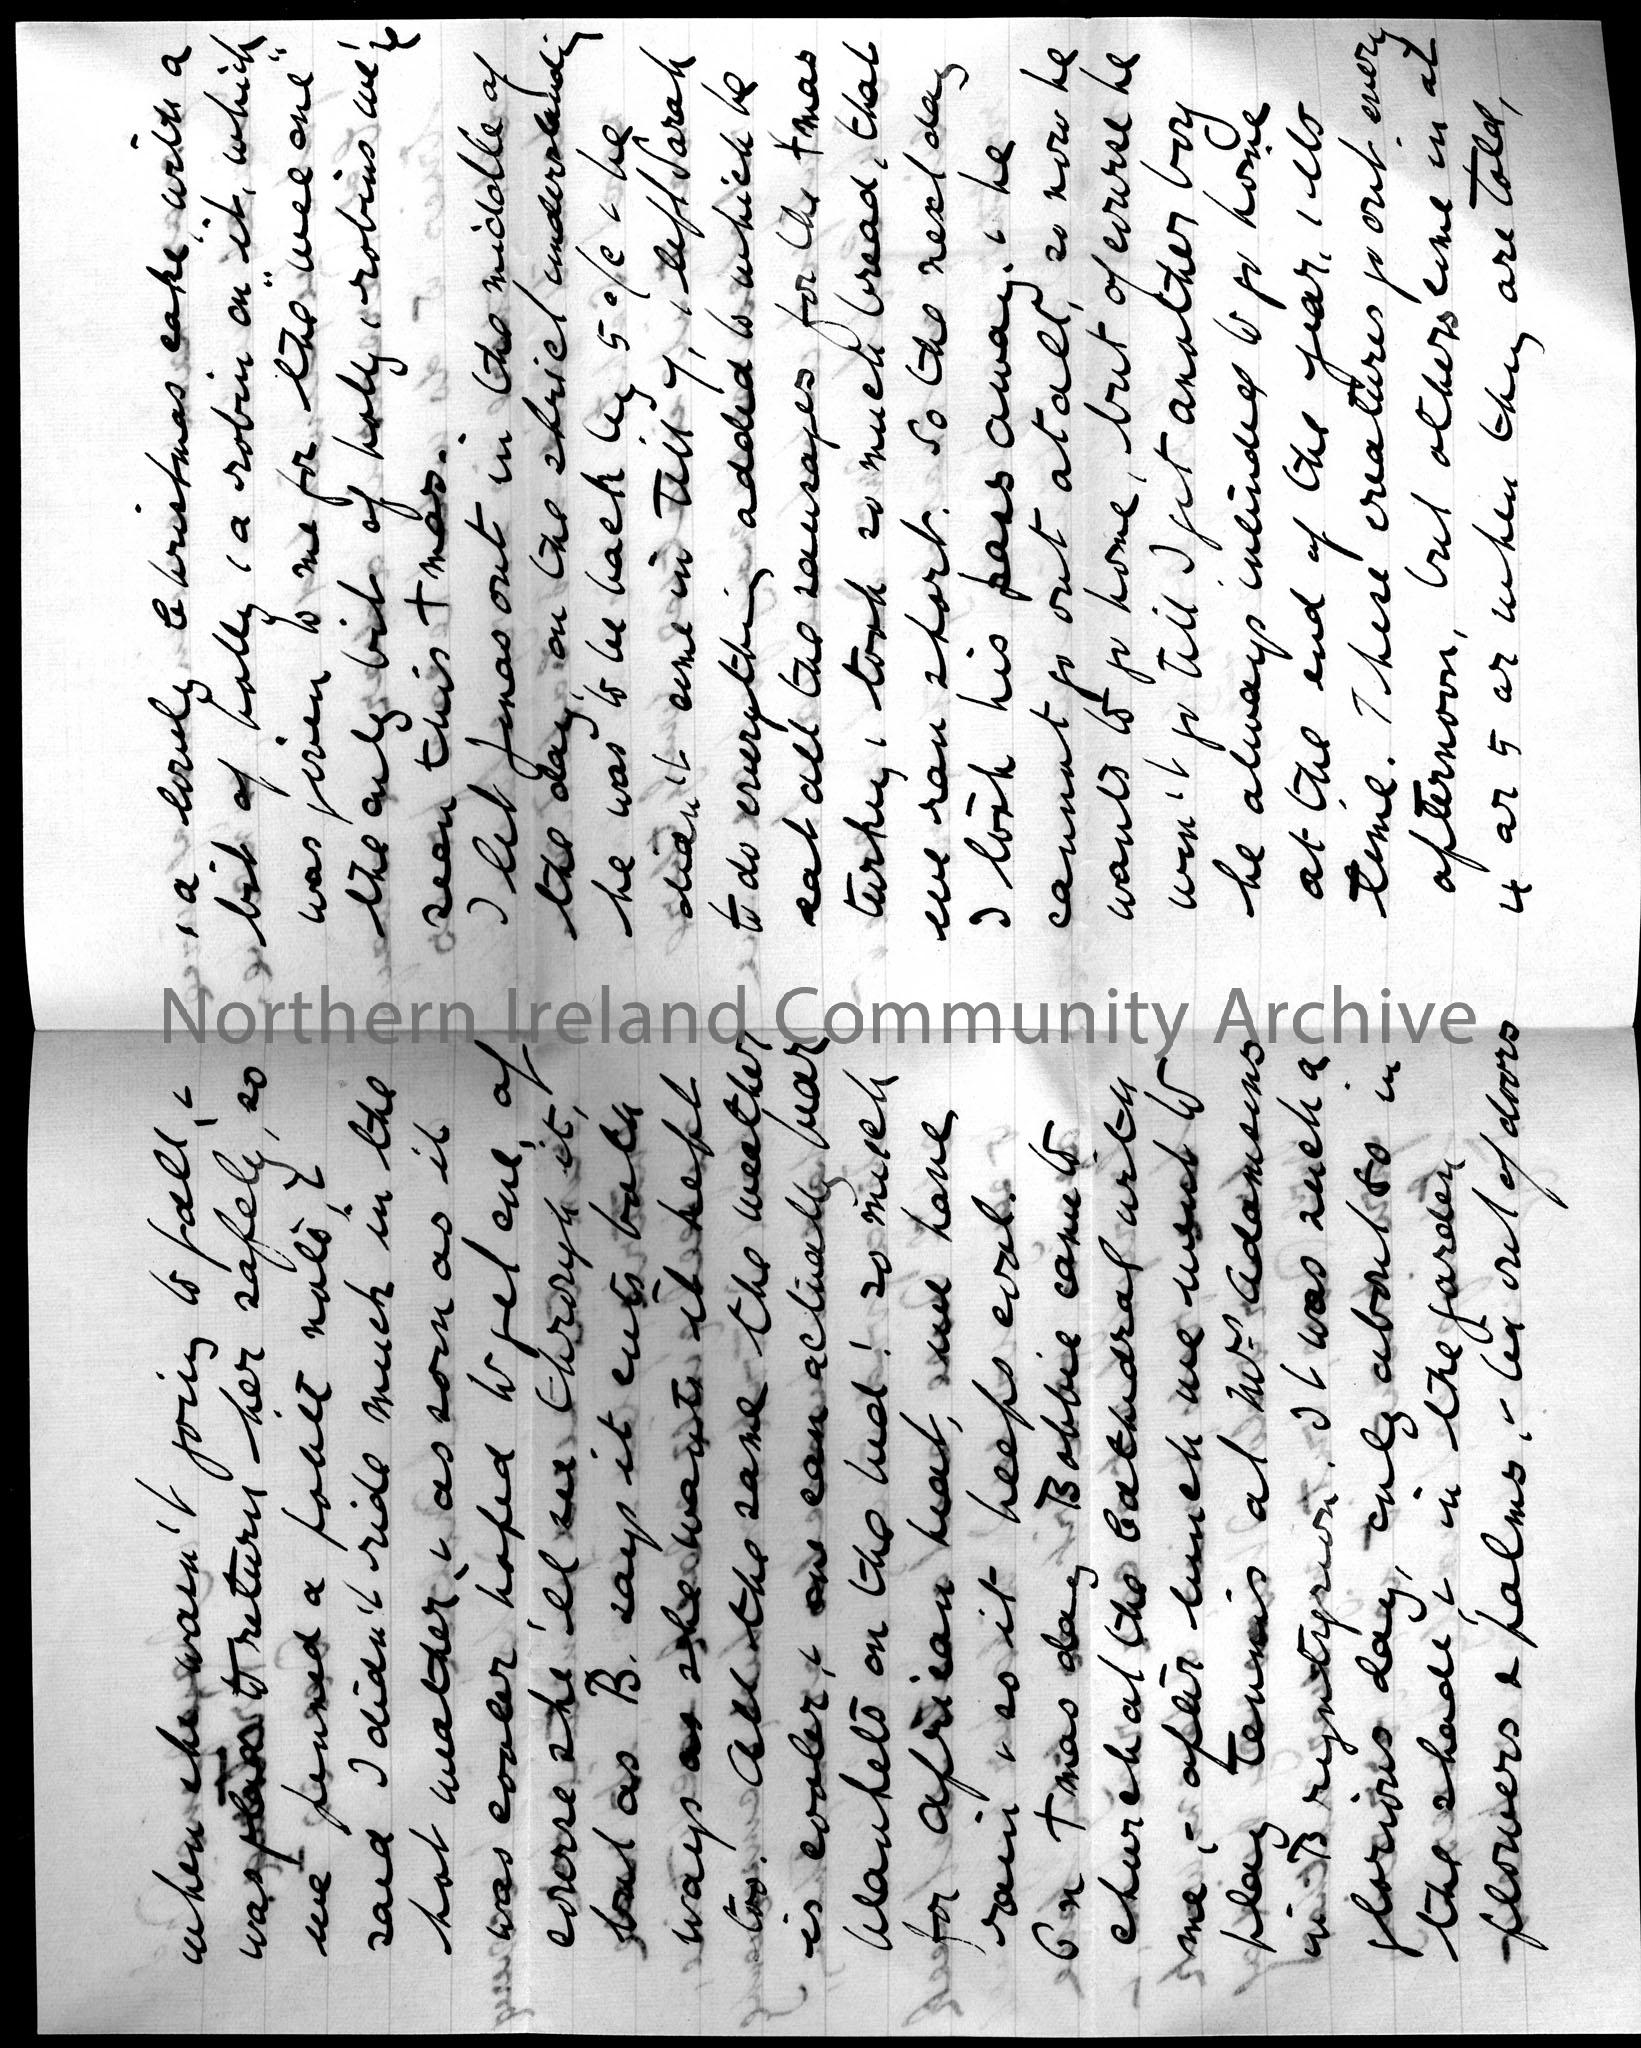 when she wasn't going to fall, &
was glad to return her safely, so
we penned a polite note, &
said I didn't ride much in the
hot weather, & as soon as it
was cooler hoped to get one, of
course she'll see through it,
but as B. says it cuts both
ways as she wants it kept
too. All the same the weather
is cooler, & one can actually bear
blankets on the bed! so much
for African heat, we have
rain & so it keeps cool.
On Xmas day Bobbie came to
church at the Cathedral with
me, & after lunch we went to
play Tennis at Mrs Adamsons
in B'. It was such a
glorious day, only about 80 in
the shade & in the garden
flowers & palms, & tea out of doors
& a lovely Christmas cake with a
bit of holly & a "robin on" it, which
was given to me for "the wee one"
the only bit of holly & robins we've
seen this Xmas.
I let Jonas out in the middle of
the day, on the strict understanding
he was to be back by 5 o/c & he
didn't come in till 9, & left Sarah
to do everything added to which he
eat all the sausages for the Xmas
turkey, & took so much bread, that
we ran short. So the next day
I took his pass away, & he
cannot go out at all, so now he
wants to go home, but of course he
won't go till I get another boy
he always intended to go home
at the end of the year, & its
time. These creatures go out every
afternoon, but others come in at
4 or 5 or when they are told,
Northern Ireland Community Archive